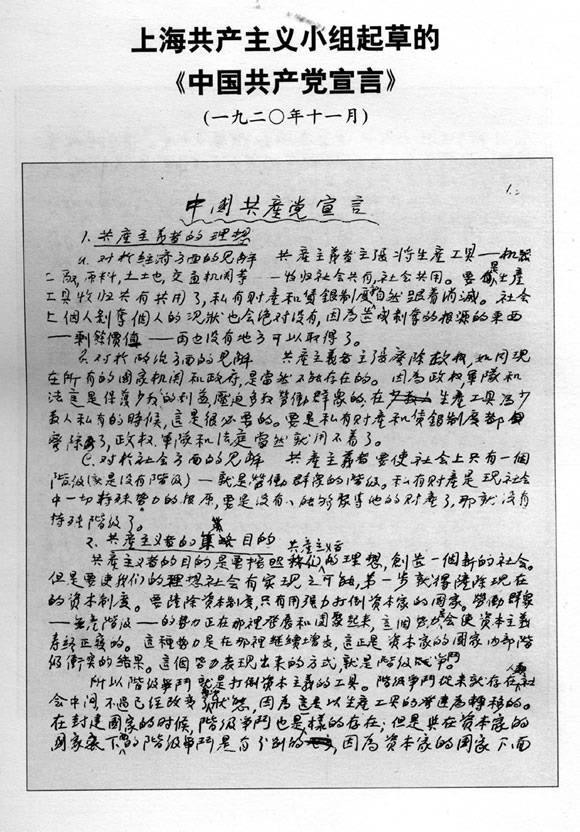 上海共产主义小组起草的
《中国共产党宣言》
(一九二〇年十一月)
1.
中國共產党宣言
1. 共產主義者的理想
a. 对於經濟方面的見解 共產主義者主張將生產工具——机器
工厰,原料,土土也,交通机関等——收归社会共有,社会共用。要是生產
工具收归共有共用了,私有財產和賃銀制度就自然跟着消滅。社会
上個人剝奪個人的現狀也会绝对没有,因為造成剝奪的根源的東西
——剩餘價值——再也没有地方可以取得了。
B. 对於政治方面的見解 共產主義者主張廢除政权,如同現
在所有的國家机関和政府,是當然不能存在的。因為政权軍隊和
法庭是保護少数的利益,壓迫多数勞働群衆的,在生產工具為少
数人私有的時候,這是很必要的。要是私有財產和賃銀制度都
廢除了,政权、軍隊和法庭當然就用不着了。
C. 对於社会方面的見解 共產主義者要使社会上只有一個
階级(就是没有階级)——就是勞働群衆的階级。私有財產是現社会
中一切特殊勢力的根原,要是没有人能够聚集他的財產了,那就没有
特殊階级了。
2. 共產主義者的目的
共產主義者的目的是要按照共產主義者的理想,創造一個新的社会。
但是要使我们的理想社会有实現之可能,第一步就得鏟除現在
的資本制度。要鏟除資本制度,只有用强力打倒資本家的國家。勞働群衆
——無產階级——的勢力正在那裡發展和團聚起來,這個勢力会使資本主義
寿終正寢的。這種勢力是在那裡継續增長,這正是資本家的國家內部階
级衝突的結果。這個勢力表現出來的方式,就是階级争鬥。
所以階级争鬥就是打倒資本主義的工具。階级争鬥從來就存在人類社
会中間,不過已经改变狀態,因為這是以生產工具的發達為轉移的。
在封建國家的时候,階级争鬥也是一樣的存在;但是與在資本家的
國家裏下面的階级争鬥是有分别的,因為資本家的國家下面